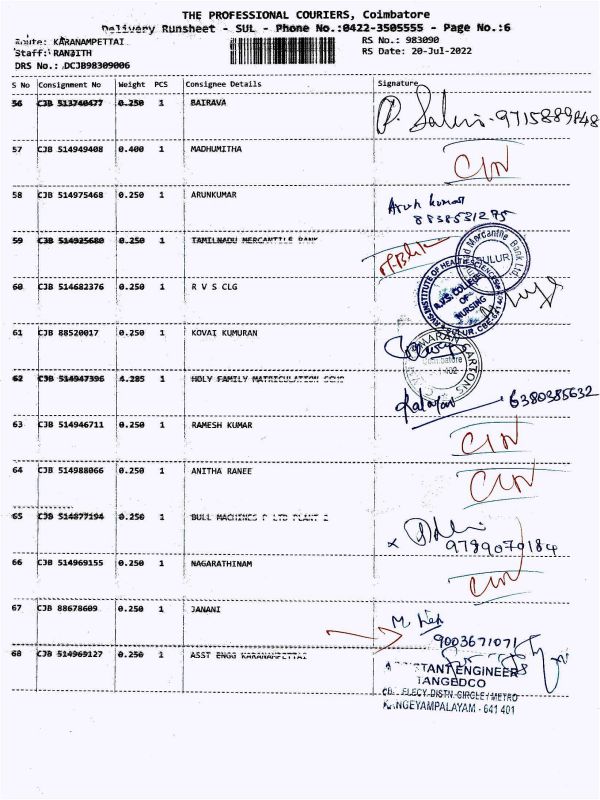 THE PROFESSIONAL COURIERS, Coimbatore
Delivery Runsheet - SUL - Phone No.:0422-3505555 - Page No.:6
Route: KARANAMPETTAI
RS No.: 983090
Staff: RANJITH
RS Date: 20-Jul-2022
DRS No.: DCJB98309006
S No Consignment No Weight PCS Consignee Details Signature
56 CJB 513740477 0.250 1 BAIRAVA
9715889848
57 CJB 514949408 0.400 1 MADHUMITHA
58 CJB 514975468 0.250 1 ARUNKUMAR Arun kumar
8838531275
59 CJB 514925680 0.250 1 TAMILNADU MERCANTILE BANK
Mercantile Bank Ltd.
SULUR
60 CJB 514682376 0.250 1 R V S CLG
R.V.S. COLLEGE
OF
NURSING
61 CJB 88520017 0.250 1 KOVAI KUMURAN
62 CJB 514947396 4.285 1 HOLY FAMILY MATRICULATION
6380385632
63 CJB 514946711 0.250 1 RAMESH KUMAR
64 CJB 514988066 0.250 1 ANITHA RANEE
65 CJB 514877194 0.250 1 BULL MACHINES P LTD PLANT 2
x
9789079184
66 CJB 514969155 0.250 1 NAGARATHINAM
67 CJB 88678609 0.250 1 JANANI
9003671071
68 CJB 514969127 0.250 1 ASST ENGG KARANAMPETTAI
ASSISTANT ENGINEER
TANGEDCO
ELECY DISTN. CIRCLE / METRO
KANGEYAMPALAYAM - 641 401